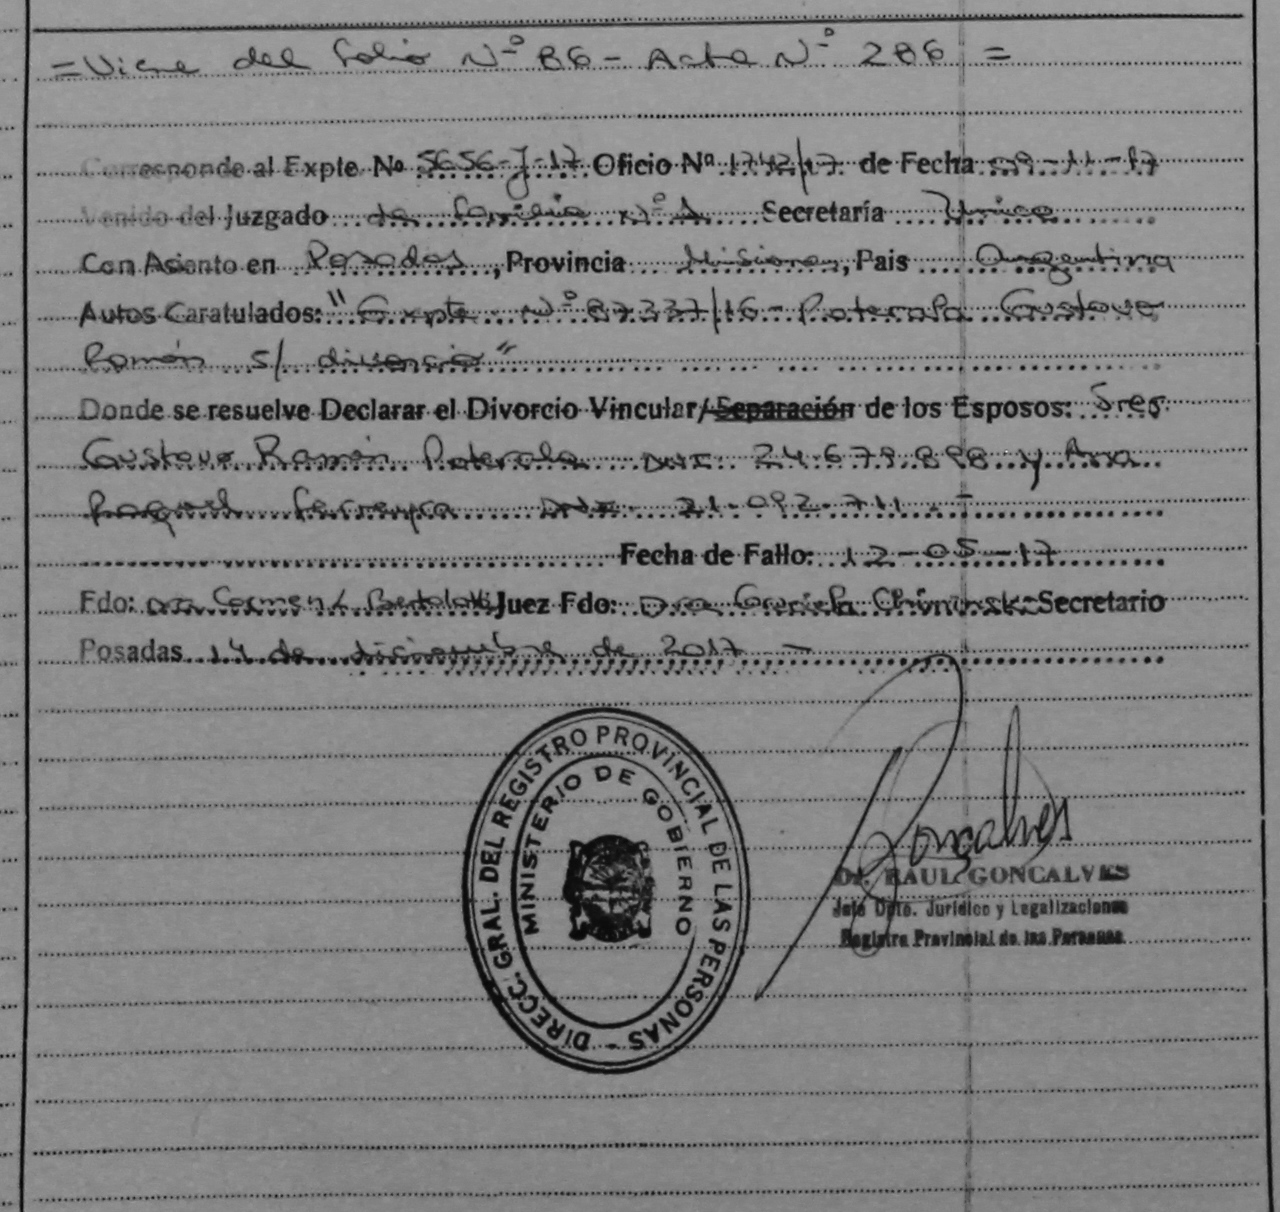 =Viene del folio Nº 86 - Acta Nº 286 =
Corresponde al Expte. Nº 5656-J-17 Oficio Nº 1742/17 de Fecha 09-11-17
Venido del Juzgado de familia Nº 1 Secretaría Única
Con Asiento en Posadas, Provincia Misiones, Pais Argentina
Autos Caratulados: "Expte Nº 87337/16 - Poterala Gustavo
Román s/ divorcio"
Donde se resuelve Declarar el Divorcio Vincular/Separación de los Esposos: Sres
Gustavo Ramón Poterala DNI 24.679.898 y Ana
Raquel Ferreyra DNI 21.092.711.-
Fecha de Fallo: 12-05-17
Fdo: Dra Carmen Juez Fdo: Dra Secretario
Posadas 14 de diciembre de 2017 -
DIRECC. GRAL. DEL REGISTRO PROVINCIAL DE LAS PERSONAS -
MINISTERIO DE GOBIERNO
Gonçalves
Dr. RAUL GONCALVES
Jefe Dpto. Jurídico y Legalizaciones
Registro Provincial de las Personas